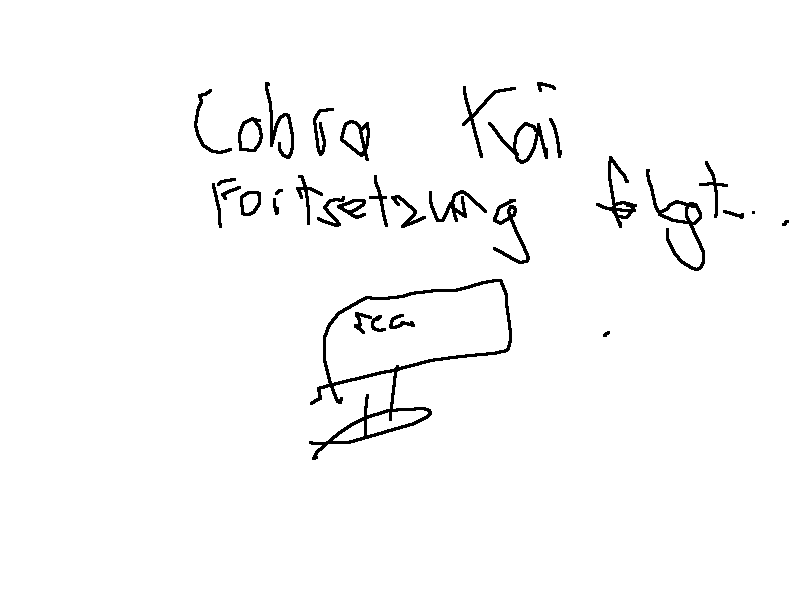 Cobra Kai
Fortsetzung folgt...
rca